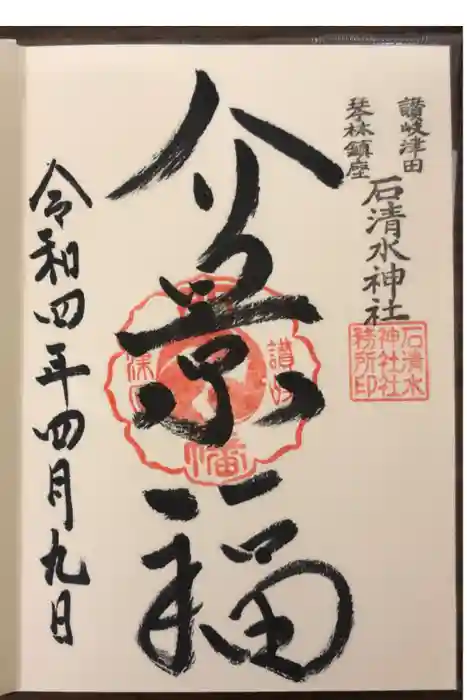 讚岐津田
琴林鎮座
石清水神社
石清水
神社社
務所印
介景福
讚岐
幡
令和四年四月九日